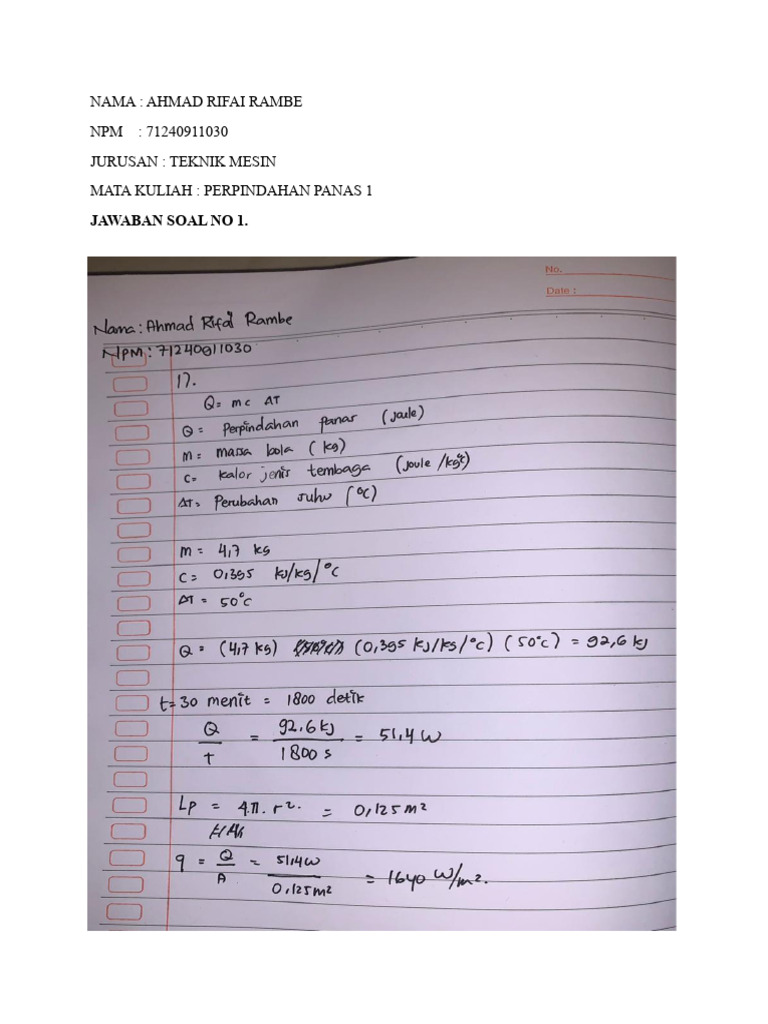 NAMA : AHMAD RIFAI RAMBE
NPM : 71240911030
JURUSAN : TEKNIK MESIN
MATA KULIAH : PERPINDAHAN PANAS 1
JAWABAN SOAL NO 1.
No.
Date :
Nama : Ahmad Rifai Rambe
NPM : 71240911030
1).
Q = mc ΔT
Q = Perpindahan panas (joule)
m = massa bola (kg)
c = kalor jenis tembaga (joule /kg°c)
ΔT = Perubahan suhu (°C)
m = 4,7 kg
C = 0,395 kJ/kg/°C
ΔT = 50°C
Q = (4,7 kg) (0,395 kJ/kg/°c) (50°c) = 92,6 kJ
t = 30 menit = 1800 detik
Q/T = 92,6 kJ/1800 s = 51,4 W
Lp = 4.π. r². = 0,125 m²
q = Q/A = 51,4 W/0,125 m² = 1640 W/m².